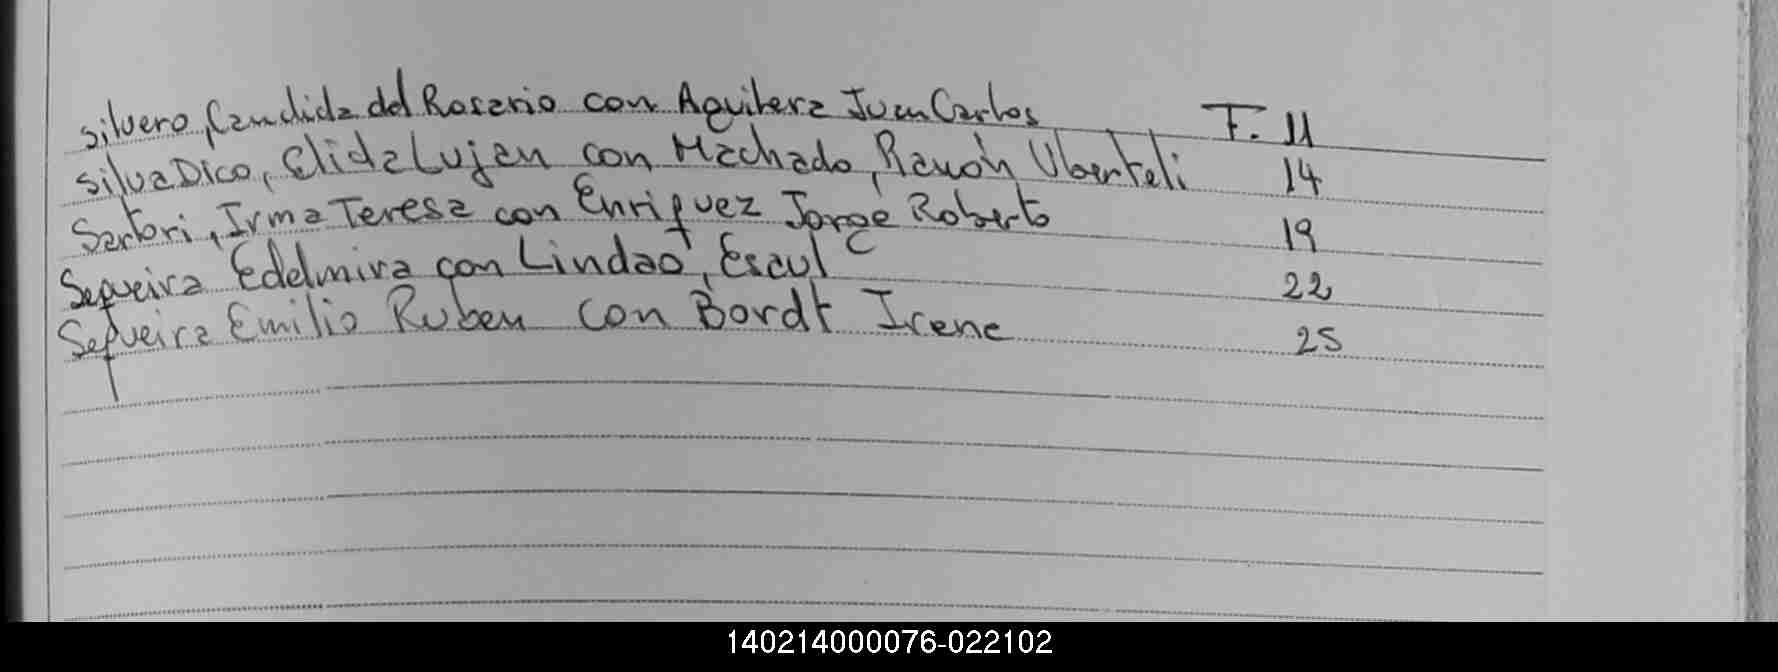 Silvero, Candida del Rosario con Aguilera Juan Carlos F. 11
Silva Dico, Elida Lujan con Machado, Ramón Uberteli 14
Sartori, Irma Teresa con Enriquez Jorge Roberto 19
Sequeira Edelmira con Lindao, Esaul C 22
Sequeira Emilio Ruben con Bordt Irene 25
140214000076-022102